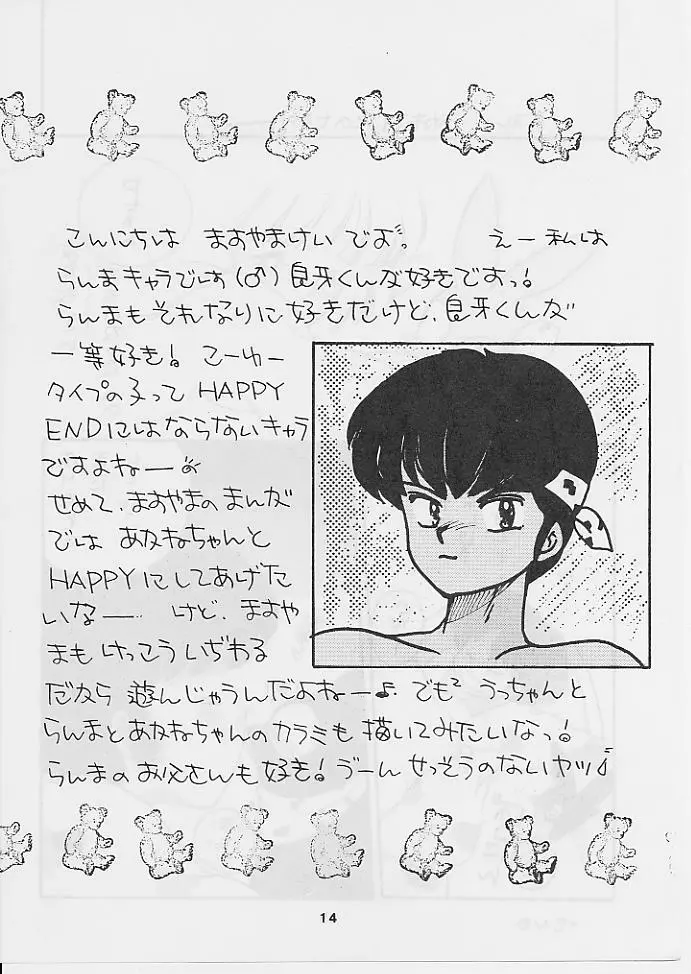 こんにちは ますやまけいです。 えー私は
らんまキャラでは(♂)良牙くんが好きですっ!
らんまもそれなりに好きだけど、良牙くんが
一等好き! こーゆー
タイプの子って HAPPY
ENDにはならないキャラ
ですよねー
せめて、ますやまのまんが
では あかねちゃんと
HAPPYにしてあげた
いなー けど、ますや
まも けっこう いぢわる
だから 遊んじゃうんだよねー♪ でも² うっちゃんと
らんまとあかねちゃんのカラミも描いてみたいなっ!
らんまのお父さんも好き! うーん せっそうのないヤツ♪
14